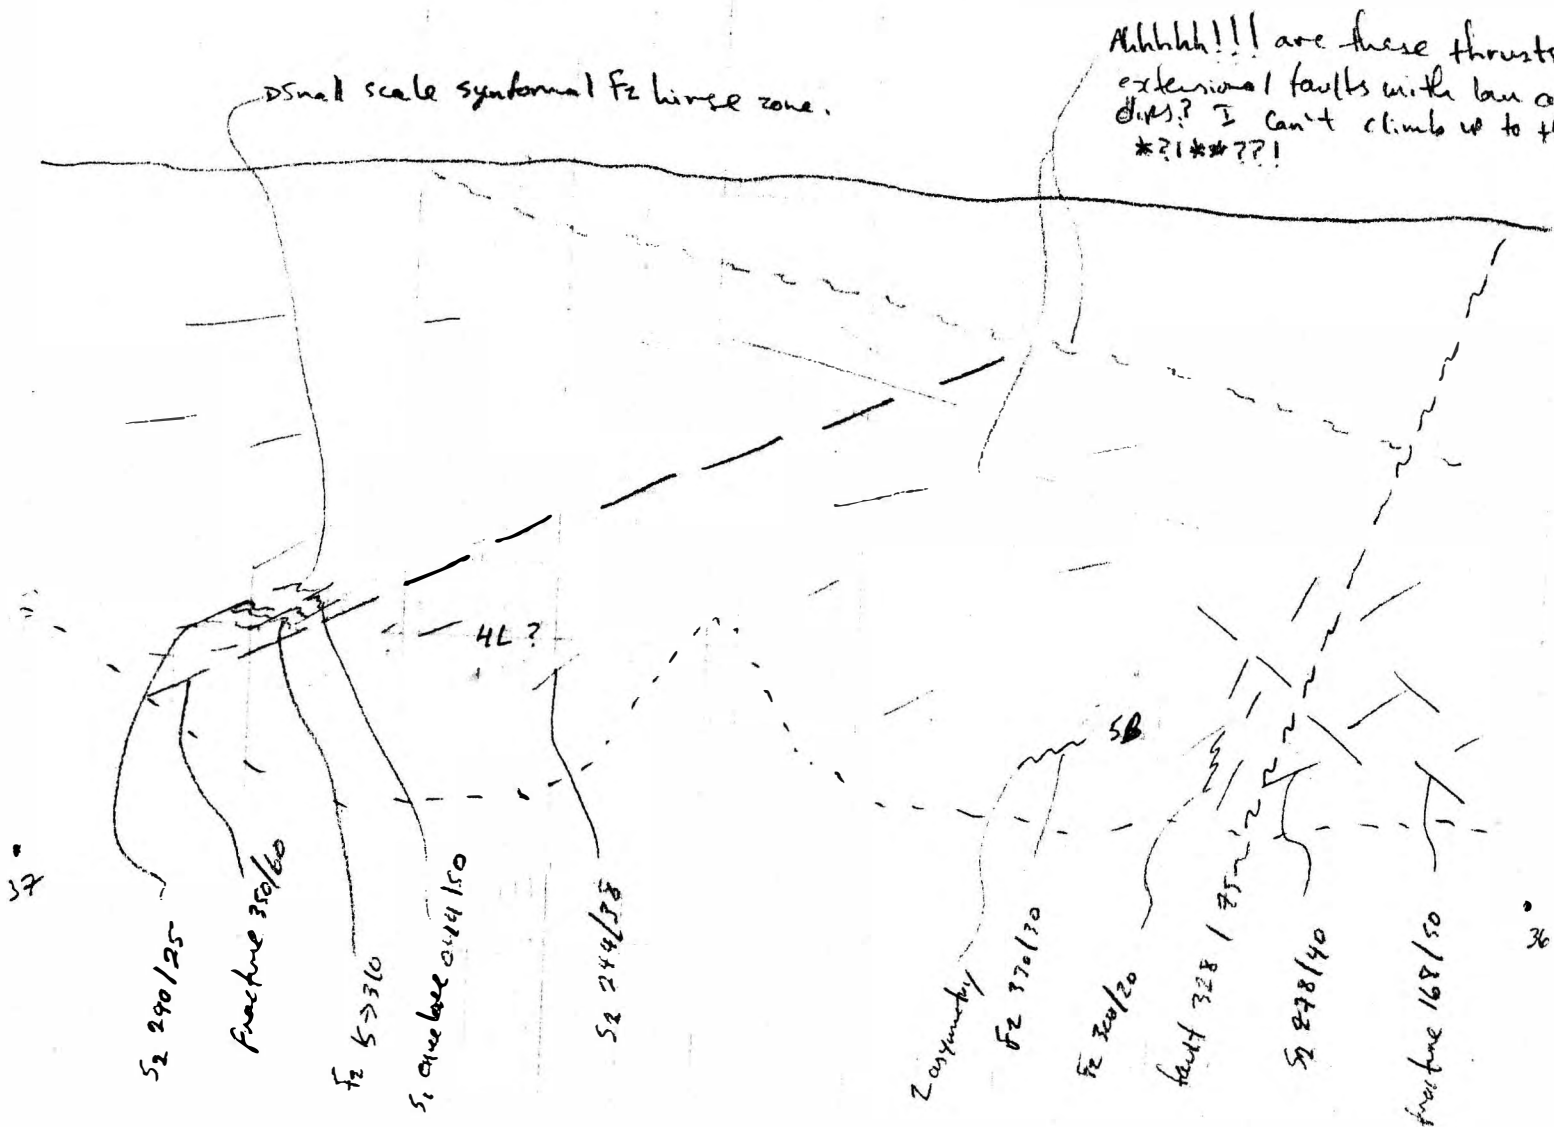 Small scale synformal F2 hinge zone.
Ahhhhh!!! are these thrusts
extensional faults with low
dips? I can't climb up to
*?!**??!
4L ?
5B
37
36
S2 290/25
Fracture 350/60
F2 15->310
S1 044/50
S2 244/38
Z asymmetry
F2 330/30
F2 300/20
fault 328/75
S2 278/40
fracture 168/50